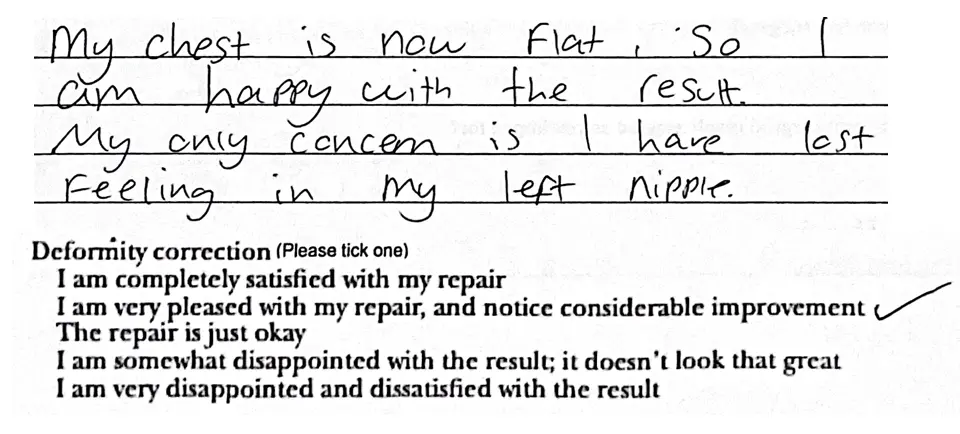 My chest is now flat, So I
am happy with the result.
My only concern is I have lost
Feeling in my left nipple.
Deformity correction (Please tick one)
I am completely satisfied with my repair
I am very pleased with my repair, and notice considerable improvement ✓
The repair is just okay
I am somewhat disappointed with the result; it doesn't look that great
I am very disappointed and dissatisfied with the result